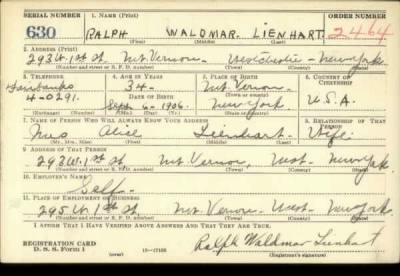 SERIAL NUMBER 1. NAME (Print) ORDER NUMBER
630 RALPH WALDMAR LIENHART 2464
(First) (Middle) (Last)
2. ADDRESS (Print)
293 W. 1st St Mt. Vernon. Westchester - New York
(Number and street or R. F. D. number) (Town) (County) (State)
3. TELEPHONE 4. AGE IN YEARS 5. PLACE OF BIRTH 6. COUNTRY OF CITIZENSHIP
Fairbanks 34 - Mt. Vernon.
DATE OF BIRTH (Town or county)
4-0291. Sept 6 - 1906. New York U.S.A.
(Exchange) (Number) (Mo.) (Day) (Yr.) (State or country)
7. NAME OF PERSON WHO WILL ALWAYS KNOW YOUR ADDRESS 8. RELATIONSHIP OF THAT PERSON
Mrs Alice Lienhart. Wife.
(Mr., Mrs., Miss) (First) (Middle) (Last)
9. ADDRESS OF THAT PERSON
293 W. 1st St Mt. Vernon, West - New York.
(Number and street or R. F. D. number) (Town) (County) (State)
10. EMPLOYER'S NAME
Self -
11. PLACE OF EMPLOYMENT OR BUSINESS
295 W. 1st St Mt. Vernon - West - New York.
(Number and street or R. F. D. number) (Town) (County) (State)
I AFFIRM THAT I HAVE VERIFIED ABOVE ANSWERS AND THAT THEY ARE TRUE.
REGISTRATION CARD
D. S. S. Form 1 (over) Ralph Waldmar Lienhart
(Registrant's signature)